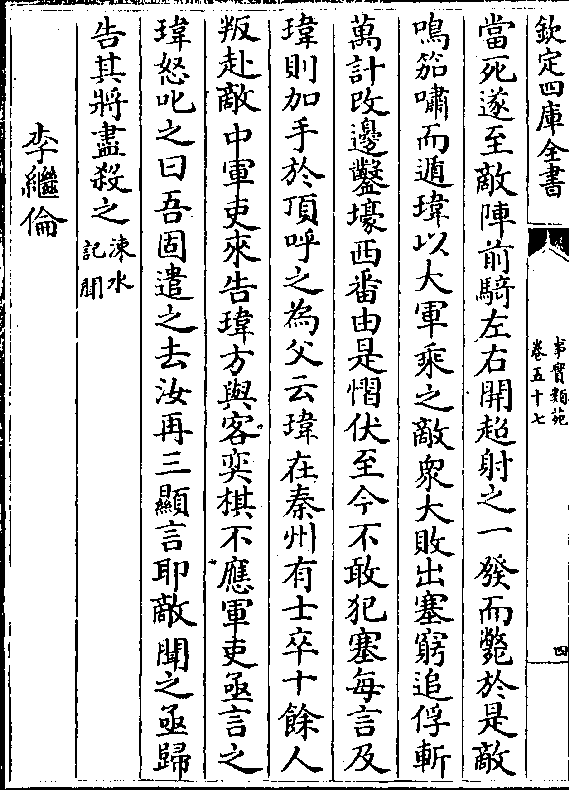 欽定四庫全書
事實類苑
卷五十七
四
當死遂至敵陣前騎左右開超射之一發而斃於是敵
鳴笳嘯而遁瑋以大軍乘之敵衆大敗出塞窮追俘斬
萬計改邊鑿壕西番由是慴伏至今不敢犯塞每言及
瑋則加手於頂呼之為父云瑋在秦州有士卒十餘人
叛赴敵中軍吏來告瑋方與客奕棋不應軍吏亟言之
瑋怒叱之曰吾固遣之去汝再三顯言耶敵聞之亟歸
告其將盡殺之涑水
記聞
李繼倫